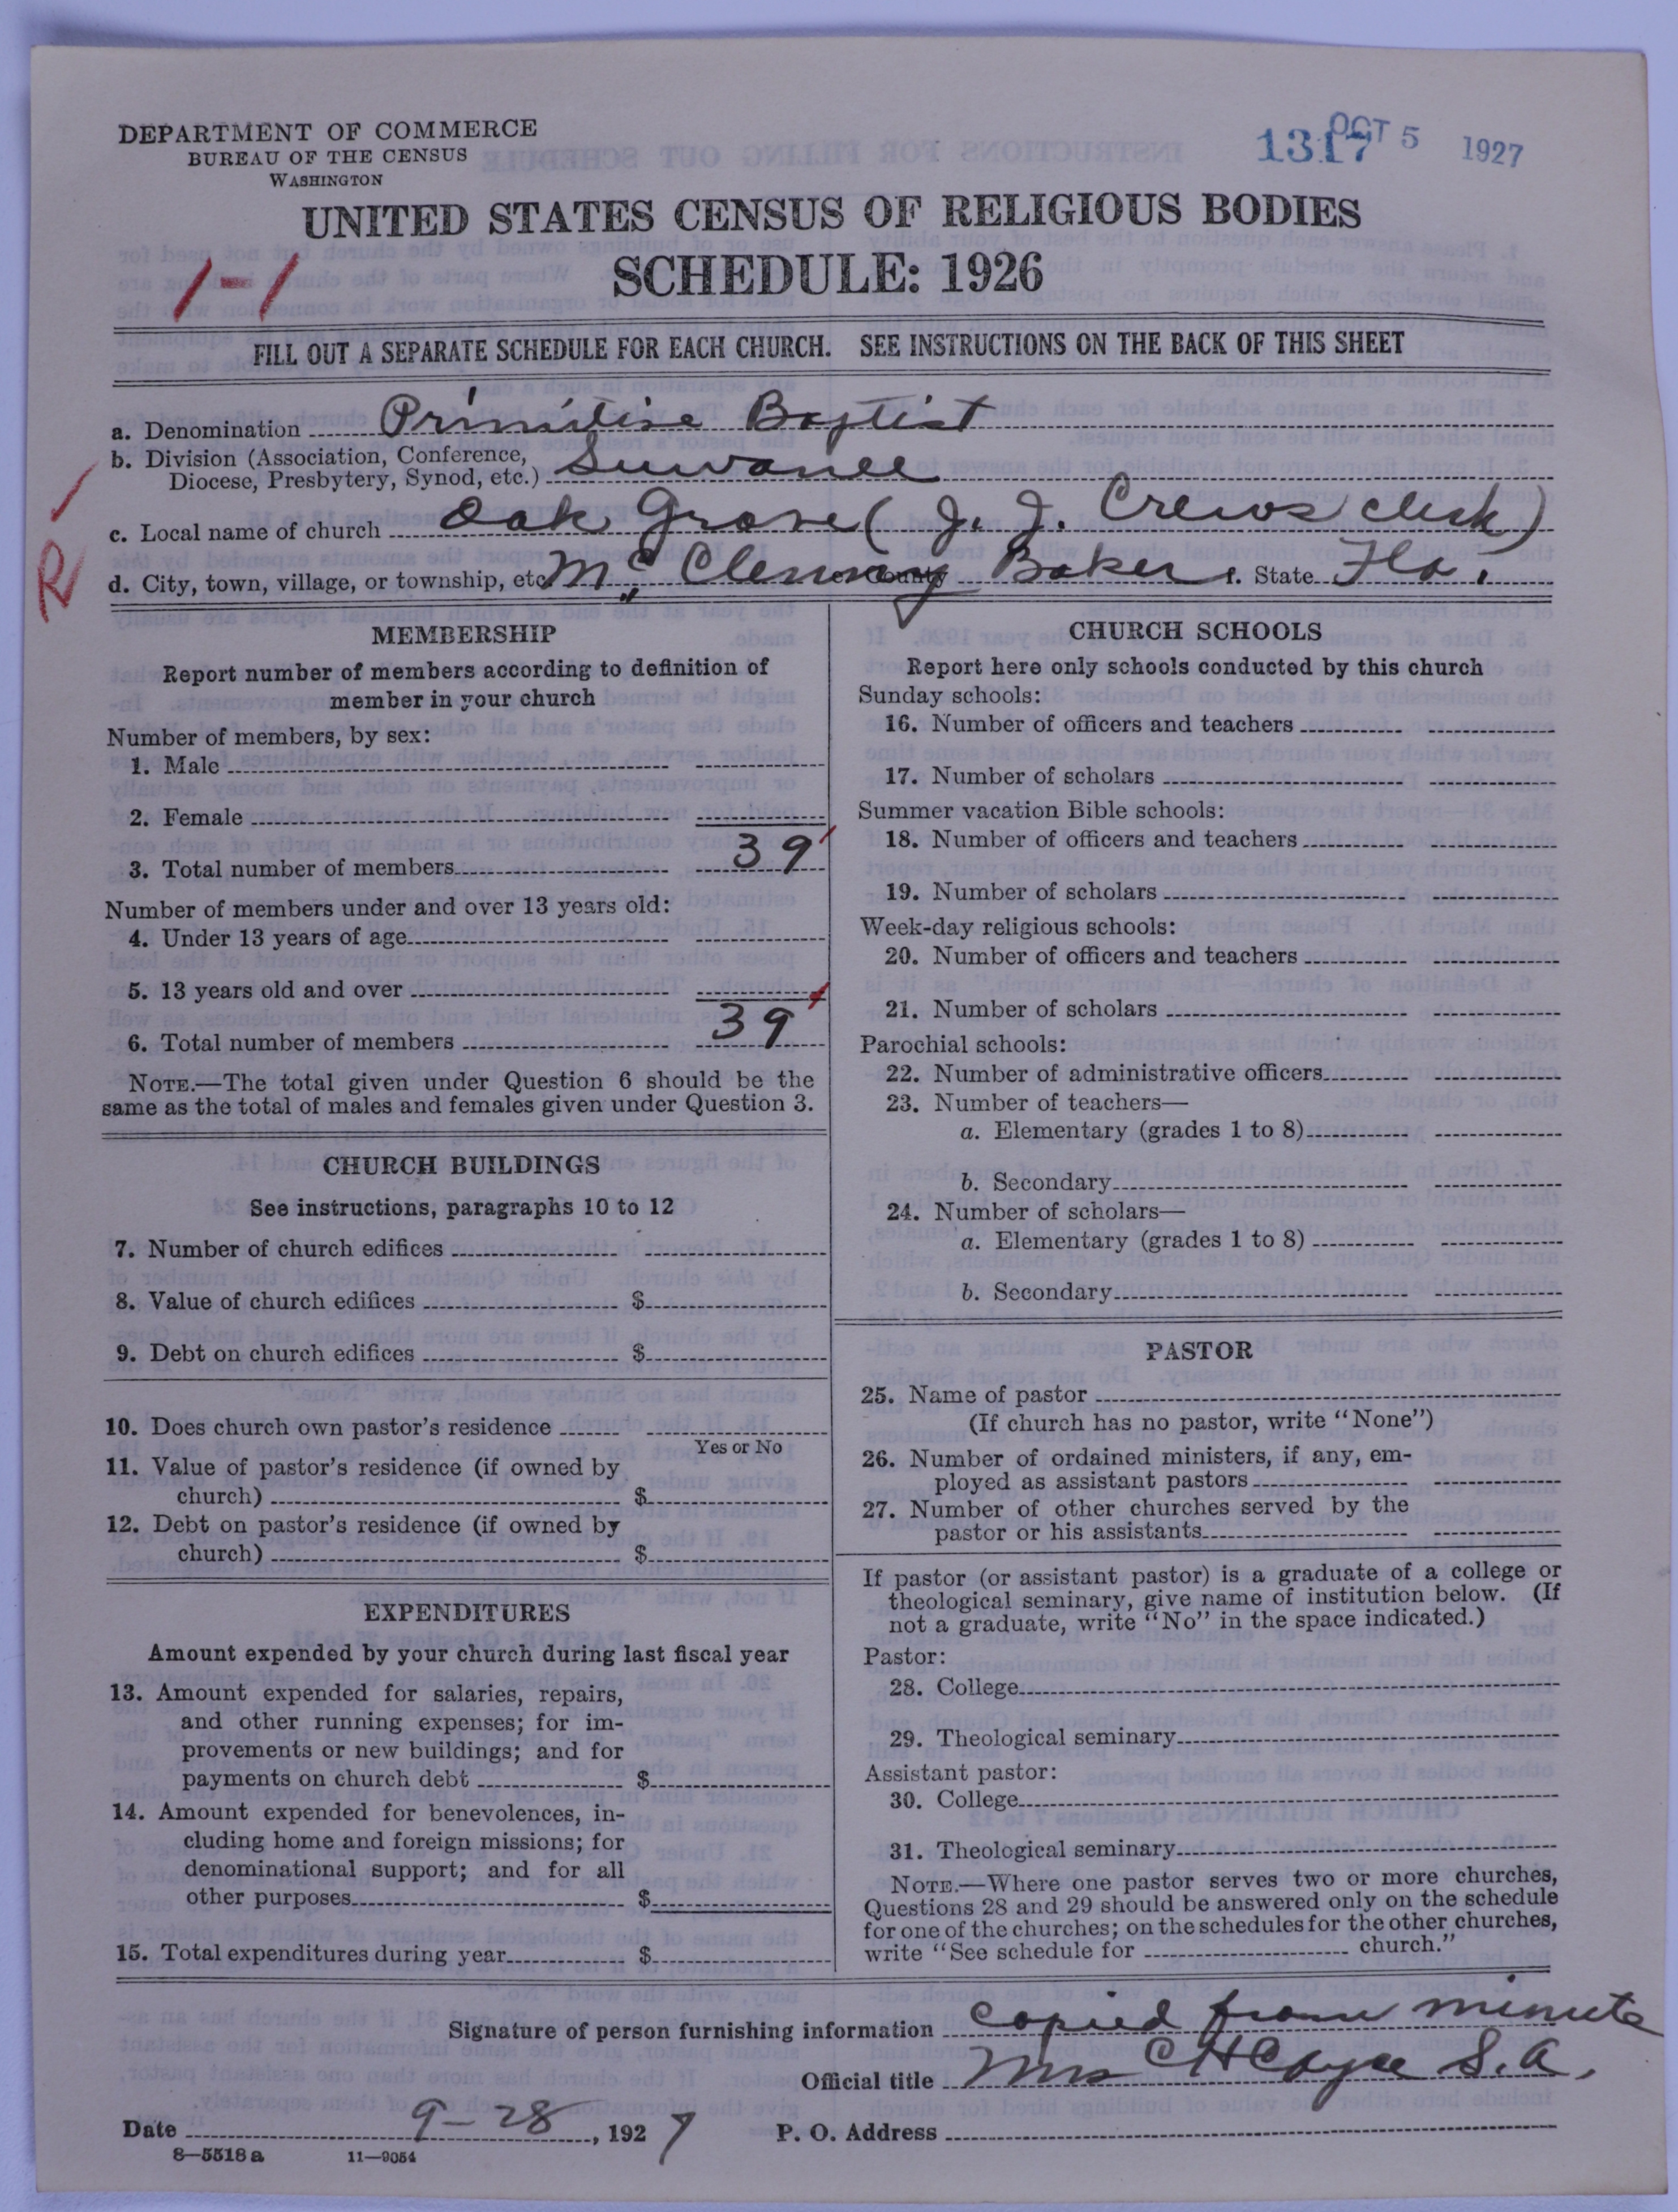 DEPARTMENT OF COMMERCE
BUREAU OF THE CENSUS
WASHINGTON
1317 OCT 5 1927
UNITED STATES CENSUS OF RELIGIOUS BODIES
SCHEDULE: 1926
1-1
FILL OUT A SEPARATE SCHEDULE FOR EACH CHURCH. SEE INSTRUCTIONS ON THE BACK OF THIS SHEET
a. Denomination Primitive Baptist
b. Division (Association, Conference,
Diocese, Presbytery, Synod, etc.) Suwanee
c. Local name of church Oak Grove (J. J. Crews clerk)
R
d. City, town, village, or township, etc. McClenny County Baker f. State Fla.
MEMBERSHIP
Report number of members according to definition of
member in your church
Number of members, by sex:
1. Male
2. Female
3. Total number of members 39
Number of members under and over 13 years old:
4. Under 13 years of age
5. 13 years old and over
6. Total number of members 39
NOTE.—The total given under Question 6 should be the
same as the total of males and females given under Question 3.
CHURCH BUILDINGS
See instructions, paragraphs 10 to 12
7. Number of church edifices
8. Value of church edifices $
9. Debt on church edifices $
10. Does church own pastor's residence
Yes or No
11. Value of pastor's residence (if owned by
church) $
12. Debt on pastor's residence (if owned by
church) $
EXPENDITURES
Amount expended by your church during last fiscal year
13. Amount expended for salaries, repairs,
and other running expenses; for im-
provements or new buildings; and for
payments on church debt $
14. Amount expended for benevolences, in-
cluding home and foreign missions; for
denominational support; and for all
other purposes $
15. Total expenditures during year $
CHURCH SCHOOLS
Report here only schools conducted by this church
Sunday schools:
16. Number of officers and teachers
17. Number of scholars
Summer vacation Bible schools:
18. Number of officers and teachers
19. Number of scholars
Week-day religious schools:
20. Number of officers and teachers
21. Number of scholars
Parochial schools:
22. Number of administrative officers
23. Number of teachers—
a. Elementary (grades 1 to 8)
b. Secondary
24. Number of scholars—
a. Elementary (grades 1 to 8)
b. Secondary
PASTOR
25. Name of pastor
(If church has no pastor, write "None")
26. Number of ordained ministers, if any, em-
ployed as assistant pastors
27. Number of other churches served by the
pastor or his assistants
If pastor (or assistant pastor) is a graduate of a college or
theological seminary, give name of institution below. (If
not a graduate, write "No" in the space indicated.)
Pastor:
28. College
29. Theological seminary
Assistant pastor:
30. College
31. Theological seminary
NOTE.—Where one pastor serves two or more churches,
Questions 28 and 29 should be answered only on the schedule
for one of the churches; on the schedules for the other churches,
write "See schedule for church."
Signature of person furnishing information copied from minute
Official title Mrs C H Cayce S.A.
Date 9-28, 1927 P. O. Address
8—5518a 11—9054